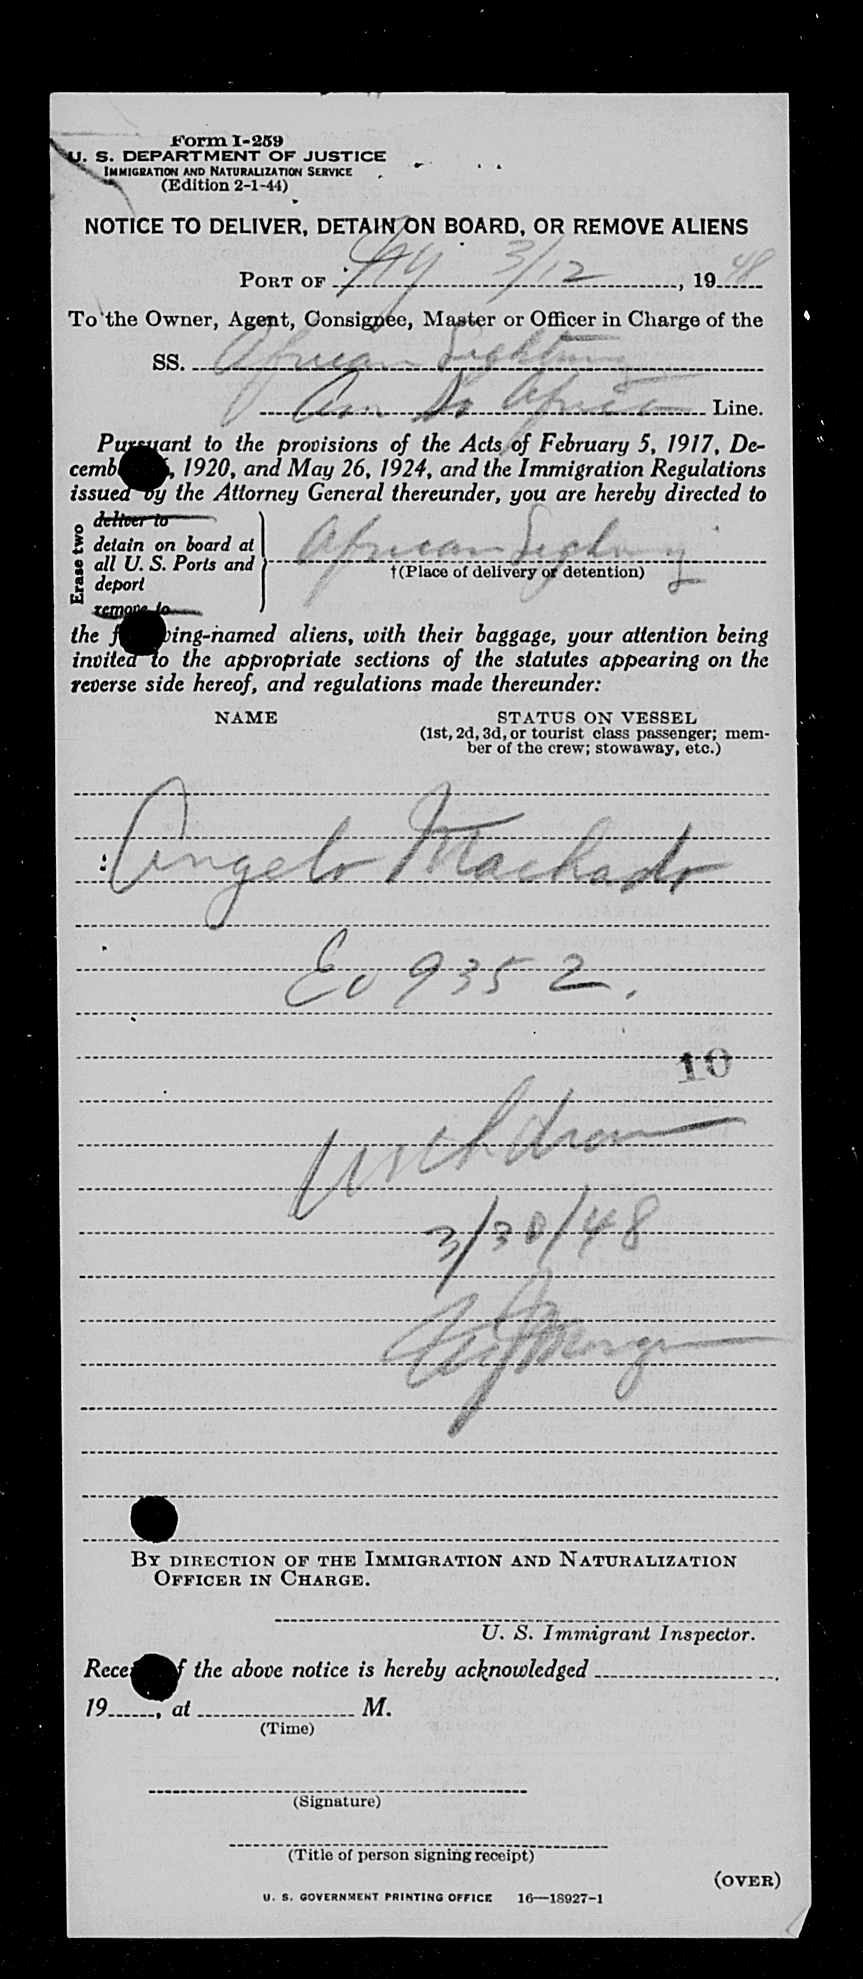 Form I-259
U. S. DEPARTMENT OF JUSTICE
IMMIGRATION AND NATURALIZATION SERVICE
(Edition 2-1-44)
NOTICE TO DELIVER, DETAIN ON BOARD, OR REMOVE ALIENS
PORT OF NY 3/12, 1948
To the Owner, Agent, Consignee, Master or Officer in Charge of the
SS. African Lightning
Am So Africa Line.
Pursuant to the provisions of the Acts of February 5, 1917, De-
cemb , 1920, and May 26, 1924, and the Immigration Regulations
issued by the Attorney General thereunder, you are hereby directed to
Erase two
deliver to
detain on board at
all U. S. Ports and
deport
remove to
African Lightning
†(Place of delivery or detention)
the f ing-named aliens, with their baggage, your attention being
invited to the appropriate sections of the statutes appearing on the
reverse side hereof, and regulations made thereunder:
NAME
STATUS ON VESSEL
(1st, 2d, 3d, or tourist class passenger; mem-
ber of the crew; stowaway, etc.)
Angelo Machado
Eo 9352.
10
Withdrawn
3/30/48
BY DIRECTION OF THE IMMIGRATION AND NATURALIZATION
OFFICER IN CHARGE.
U. S. Immigrant Inspector.
Rece f the above notice is hereby acknowledged
19 , at M.
(Time)
(Signature)
(Title of person signing receipt)
(OVER)
U. S. GOVERNMENT PRINTING OFFICE 16—18927-1